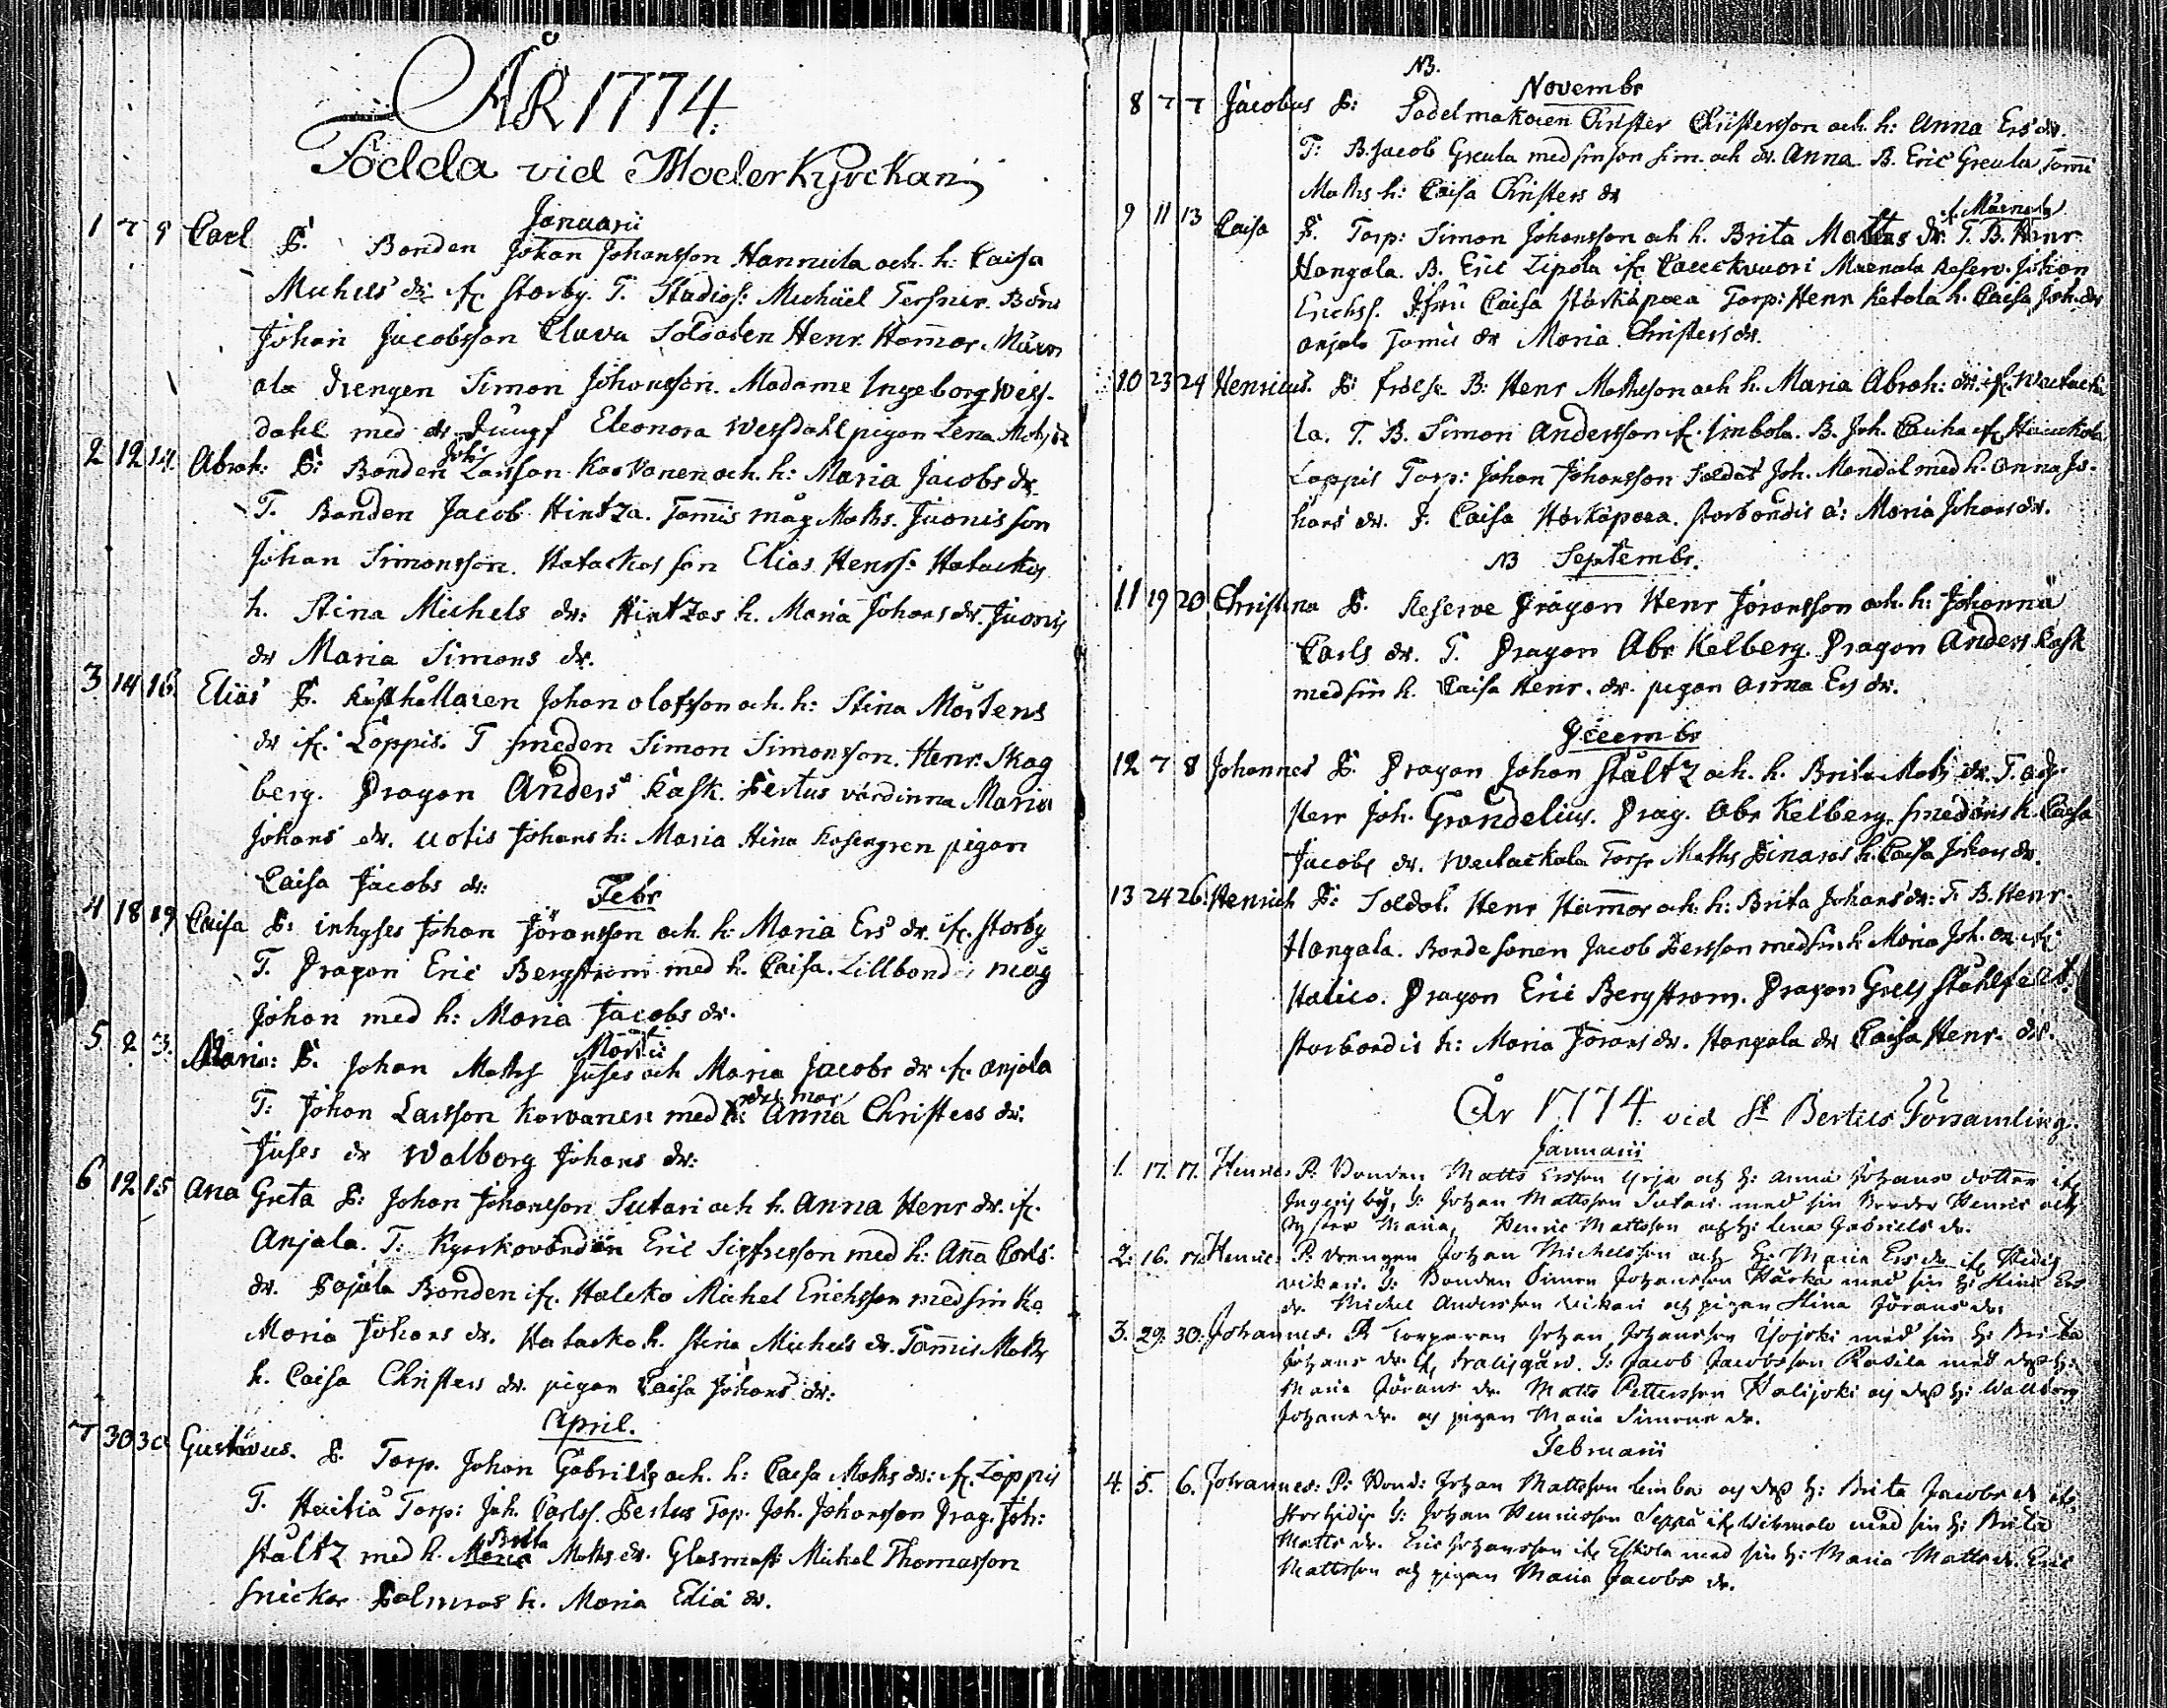 ÅR 1774.
Födda vid Moderkyrckan
Januarii
1 7 9 Carl P: Bonden Johan Johansson Hannula och h: Caisa
Michels dr: if. Storby. T. Studios: Michäel Tersner. Bond
Johan Jacobsson Clava Soldaten Henr. Hamar. Märn
ala Drengen Simon Johansson. Madame Ingeborg Wess-
dahl med dr Jungf Eleonora Wessdahl pigan Lena Mats dr
2 12 14. Abrah: P: Bonden Joh: Larsson Karvanen och h: Maria Jacobs dr.
T. Bonden Jacob Hintza. Tomis måg Maths. Juonis son
Johan Simonsson. Hatackas son Elias Henrs: Hatackas
h. Stina Michels dr: Hintzas h. Maria Johans dr. Juonis
dr Maria Simons dr.
3 14 16. Elias P. Rusthållaren Johan Olofsson och h: Stina Mårtens
dr if. Loppis. T smeden Simon Simonsson. Henr. Skog
berg. Dragon Anders Rask. Pertus värdinna Maria
Johans dr. Uotis Johans h: Maria Stina Rosengren pigan
Caisa Jacobs dr:
Febr
4 18 19 Caisa P: inhyses Johan Jöransson och h: Maria Ers dr. if. Storby
T. Dragon Eric Bergström med h. Caisa. Lillbond måg
Johan med h: Maria Jacobs dr.
Martii
5. 2 3. Maria: P. Johan Maths Juses och Maria Jacobs dr if. Anjala
T: Johan Larsson Karvanen med h: Anna Christers dr:
Juses dr Walborg Johans dr:
6 12 15 Ana Greta P: Johan Johansson Sutari och h. Anna Henr dr. if.
Anjala. T: Kyrckovärden Eric Sigfresson med h: Anna Carls
dr. Pajala Bonden if. Haleko Michel Erichsson med sin h.
Maria Johans dr. Hatacka h. Stina Michels dr. Tommis Maths
h. Caisa Christers dr. pigan Caisa Johans dr:
April.
7 30 30 Gustavus. P. Torp. Johan Gabrils och h: Caisa Maths dr: if. Loppis
T. Heikiä Torp: Joh. Carlss. Pertus Torp. Joh. Johansson Drag. Joh:
Staltz med h. Brita Maths dr. Glasmast: Michel Thomasson
Snickar Palmros h. Maria Elia dr.
NB.
Novembr
8 7 7 Jacobus P: Sadelmakaren Christer Christersson och h: Anna Ers dr.
T: B. Jacob Greula med sin son Sim. och dr. Anna B. Eric Greula Tommi
Maths h: Caisa Christers dr
9 11 13 Caisa P. Torp: Simon Johansson och h. Brita Matts dr. if. Märnala T. B. Henr
Hangala. B. Eric Lipola if. Märnala Reserv. Johan
Erichss. Caisa Torp: Henr Ketola h. Caisa Joh. dr
Anjala Tomis dr Maria Christers dr.
10 23 24 Henricus. P: B: Henr Mathsson och h. Maria Abrah: dr. if.
la. T. B. Simon Andersson if. B. Joh. if.
Loppis Torp: Johan Johansson Soldat Joh. Mandal med h. Anna Jo-
hans dr. J. Caisa Storbondis d: Maria Johans dr.
NB Septembr.
11 19 20 Christina P. Reserve Dragon Henr Jöransson och h: Johanna
Carls dr. T. Dragon Abr Kelberg. Dragon Anders Rask
med sin h. Caisa Henr. dr. pigan Anna Ers dr.
Decembr
12 7 8 Johannes P. Dragon Johan Staltz och h. Brita Maths dr. T.
Herr Joh. Grandelius. Drag. Abr Kelberg. smedens h. Caisa
Jacobs dr. Torp Maths h. Caisa Johans dr.
13 24 26. Henrich P: Soldat. Henr Hammar och h: Brita Johans dr: T. B. Henr.
Hangala. Bondesonen Jacob Persson med sin h Maria Joh. dr if.
Dragon Eric Bergstrom. Dragon Grels Stahlfelt.
Storbondis h: Maria Jörans dr. Hangala dr Caisa Henr. dr.
År 1774 vid St Bertils Församling.
Januarii
1. 17. 17. Henric P: Bonden Matts Ersson Yrjä och h: Anna Johans dotter if.
Ingeris by, T: Johan Mattsson Sutari med sin Broder Henric och
Syster Maria, Henric Mattsson och h: Lena Gabriels dr.
2. 16. 17. Henric P: Drengen Johan Michelsson och h: Maria Ers dr if.
T: Bonden Simon Johansson Härkä med sin h: Stina Ers
dr. Michel Andersson Wikari och pigan Stina Jörans dr.
3. 29. 30. Johannes. P: Torparen Johan Johansson med sin h: Brita
Johans dr. T: Jacob Jacobsson Rasila med dess h:
Maria Jörans dr. Matts Pettersson Halijoki och dess h: Walborg
Johans dr. och pigan Maria Simons dr.
Februarii
4. 5. 6. Johannes: P: Bond: Johan Mattsson och dess h: Brita Jacobs dr if.
T: Johan Henricsson Seppä if. med sin h: Brita
Matts dr. Eric Johansson if. Eskola med sin h: Maria Matts dr. Eric
Mattsson och pigan Maria Jacobs dr.